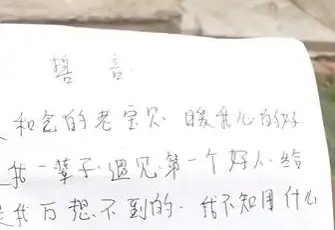 誓言
和我的老宝贝.暖我心的好
我一辈子.遇见.第一个好人.给
是我万想不到的.我不知用什么